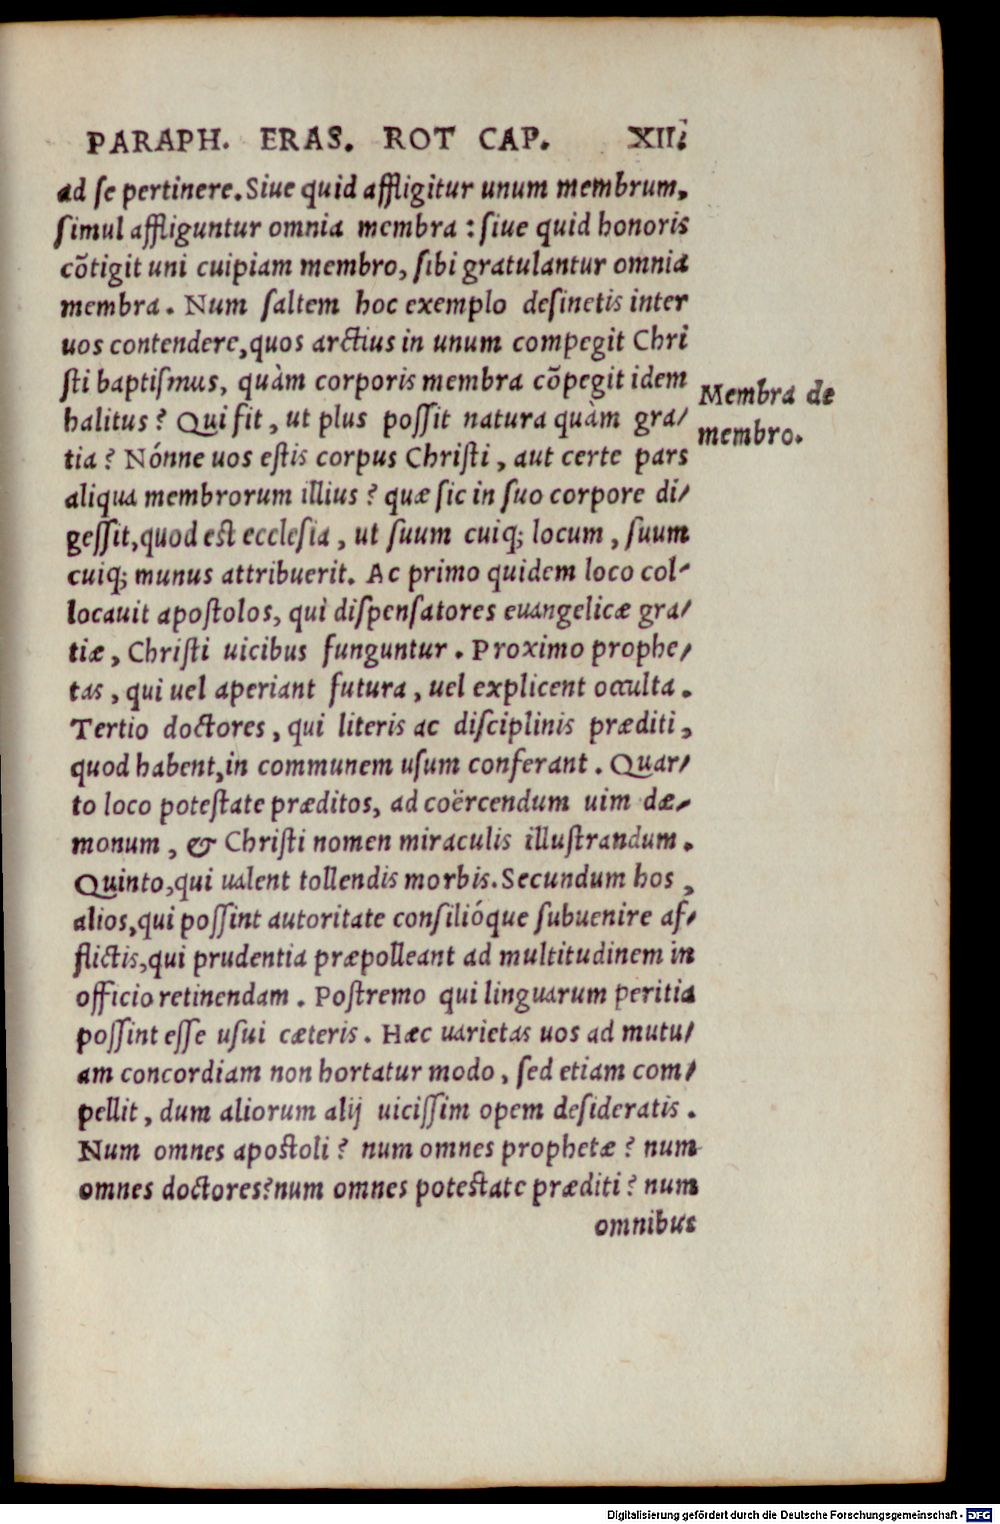 PARAPH. ERAS. ROT CAP. XII.
ad ſe pertinere. Siue quid affligitur unum membrum,
ſimul affliguntur omnia membra : ſiue quid honoris
cõtigit uni cuipiam membro, ſibi gratulantur omnia
membra. Num ſaltem hoc exemplo deſinetis inter
uos contendere, quos arctius in unum compegit Chri
ſti baptiſmus, quàm corporis membra cõpegit idem
halitus? Qui fit, ut plus poſſit natura quàm gra/
tia? Nónne uos eſtis corpus Chriſti, aut certe pars
aliqua membrorum illius? quæ ſic in ſuo corpore di/
geſſit, quod eſt eccleſia, ut ſuum cuiq; locum, ſuum
cuiq; munus attribuerit. Ac primo quidem loco col/
locauit apoſtolos, qui diſpenſatores euangelicæ gra/
tiæ, Chriſti uicibus funguntur. Proximo prophe/
tas, qui uel aperiant futura, uel explicent occulta.
Tertio doctores, qui literis ac diſciplinis præditi,
quod habent, in communem uſum conferant. Quar/
to loco poteſtate præditos, ad coërcendum uim dæ/
monum, & Chriſti nomen miraculis illuſtrandum.
Quinto, qui ualent tollendis morbis. Secundum hos,
alios, qui poſſint autoritate conſilióque ſubuenire af/
flictis, qui prudentia præpolleant ad multitudinem in
officio retinendam. Poſtremo qui linguarum peritia
poſſint eſſe uſui cæteris. Hæc uarietas uos ad mutu/
am concordiam non hortatur modo, ſed etiam com/
pellit, dum aliorum alij uiciſſim opem deſideratis.
Num omnes apoſtoli? num omnes prophetæ? num
omnes doctores? num omnes poteſtate præditi? num
omnibus
Membra de
membro.
Digitalisierung gefördert durch die Deutsche Forschungsgemeinschaft - DFG